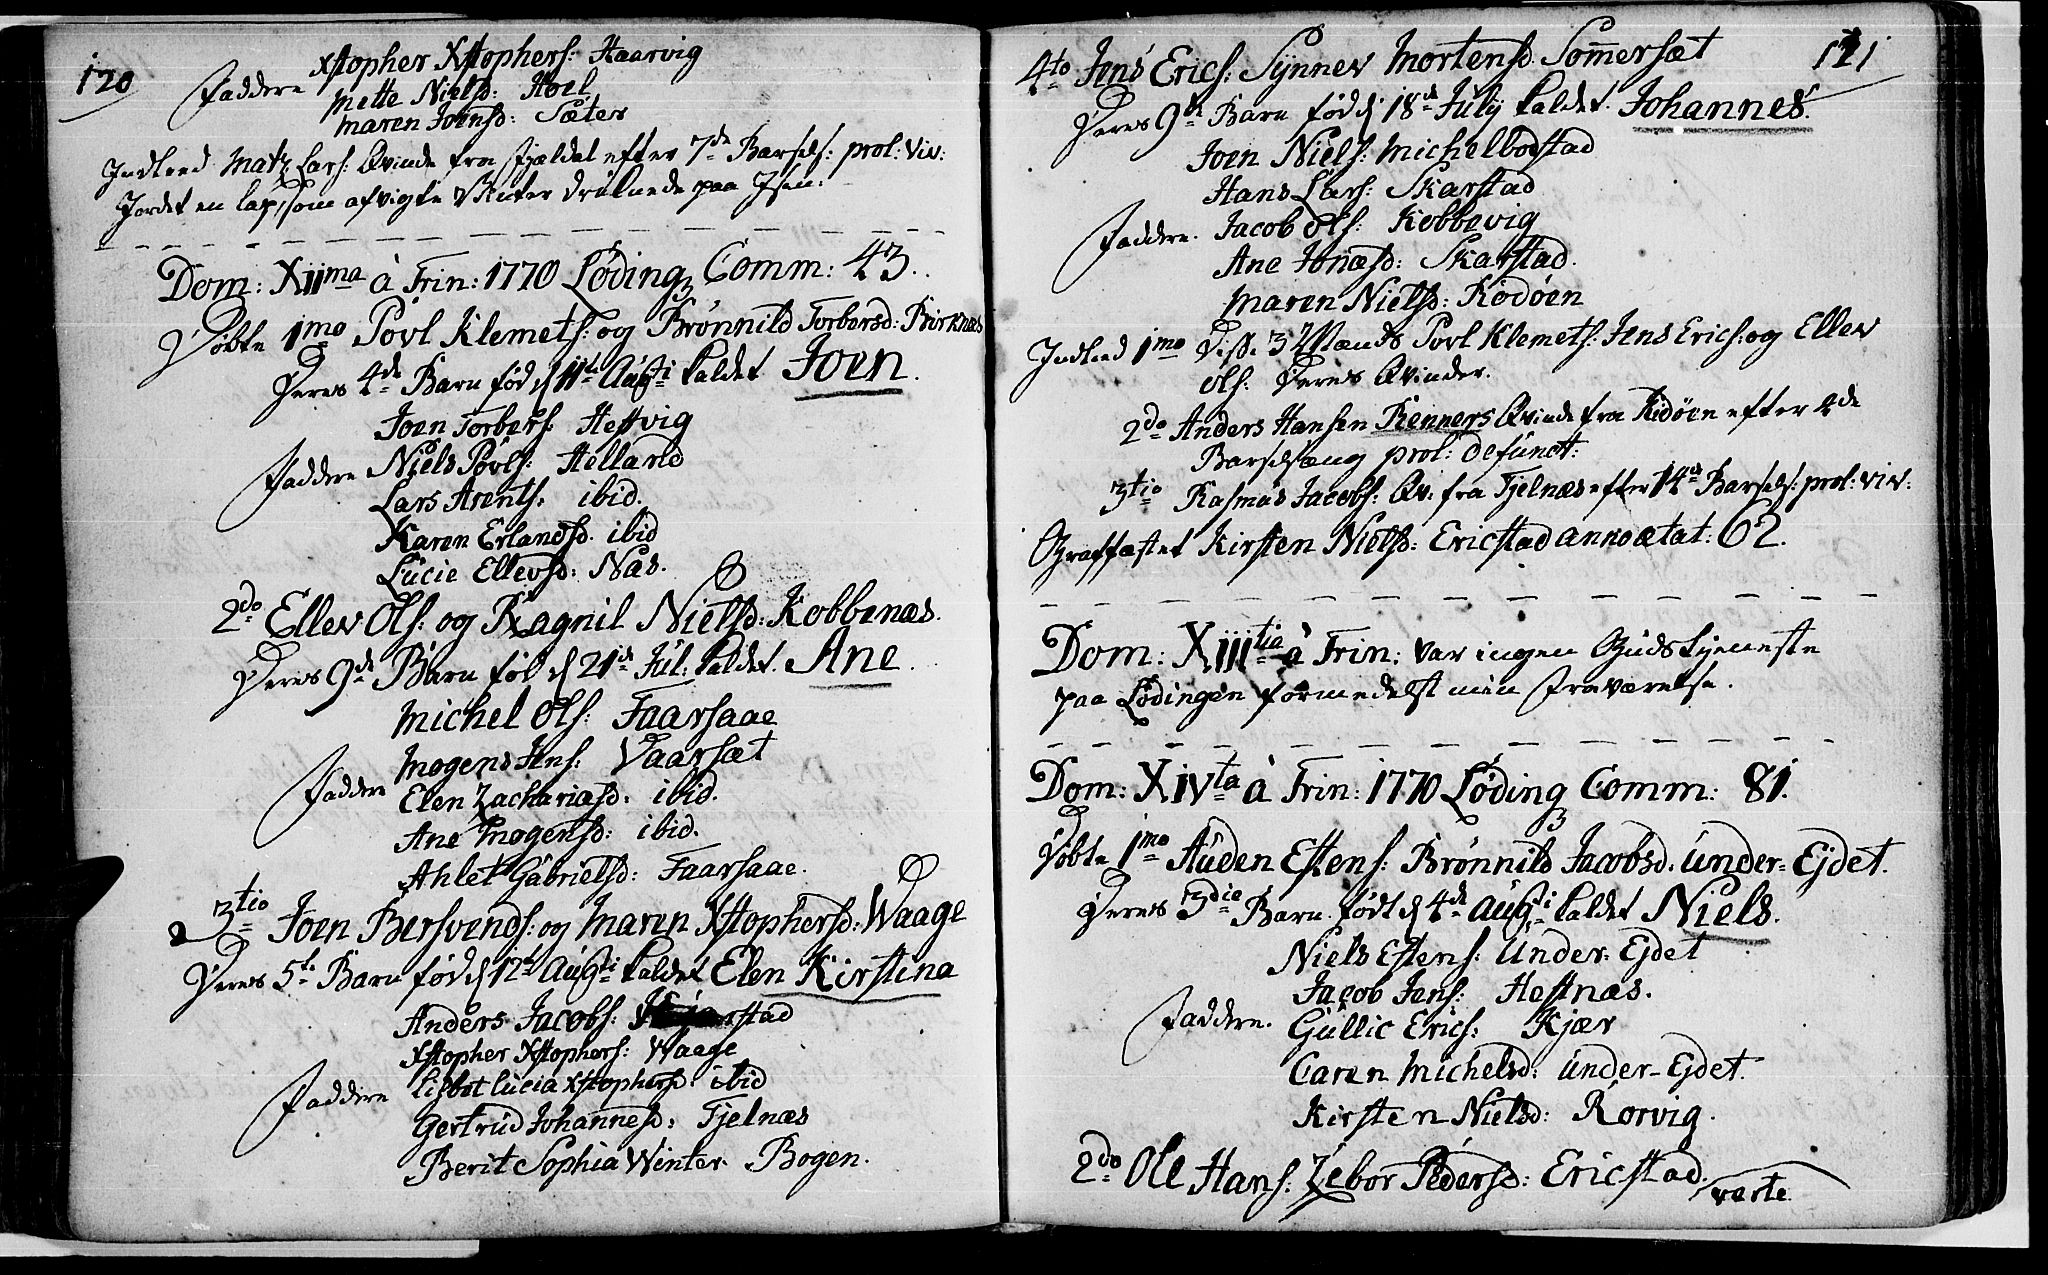 120
Xstopher Xstophers: Haarvig
Faddere Mette Nielsd: Hoel
Maren Joensd: Sæter
Indleed Matz Lars: Qvinde fra Fjældet efter 7de Barsels: prol: viv:
Jordet en lap, som afvigte Vinter druknede paa Isen:
Dom: XIIma à Trin: 1770 Løding Comm: 43.
Døbte 1mo Povl Klemets: og Brønnild Torbersd: Birknæs
Deres 4de Barn fød d 11te Augti kaldet Joen.
Joen Torbers: Hestvig
Faddere Niels Povls: Helland
Lars Arents: ibid.
Karen Erlandsd. ibid
Lucie Ellevsd: Næs.
2do Ellev Ols: og Ragnil Nielsd: Kobbenæs.
Deres 9de Barn fød d 21de Jul: kaldet Ane.
Michel Ols: Faarsaae
Mogens Jens: Vaarsæt
Faddere Elen Zachariæsd: ibid.
Ane Mogensd: ibid.
Ahlet Gabrielsd: Faarsaae.
3tio Joen Bersvends: og Maren Xstophersd: Waage
Deres 5te Barn fød d 12te Augti kaldet Elen Kirstina
Anders Jacobs:
Xstopher Xstophers: Waage
Faddere Lisbet Lucia Xstophersd: ibid
Gertrud Johannesd: Tjelnæs
Berit Sophia Winter. Bogen.
121
4to Jens Erics: Synnev Mortensd. Somersæt
Deres 9de Barn fød d 18de July kaldet Johannes.
Joen Niels: Michelbostad
Hans Lars: Skarstad
Faddere. Jacob Ols: Kobbevig
Ane Jonæsd: Skarstad.
Maren Nielsd: Rodøen
Indleed 1mo Diss. 3 Mænds Povl Klemets: Jens Erics: og Ellev
Ols: Deres Qvinder.
2do Anders Hansen Renners Qvinde fra Ridøen efter 2de
Barselsæng prol: defunct:
3tio Rasmus Jacobs: Qv: fra Tjelnæs efter 14de Barsels: prol: viv:
Graffæstet Kirsten Nielsd: Ericstad anno ætat: 62.
Dom: XIIItia à Trin: var ingen Guds tjeneste
paa Lødingen formedelst min fraværelse.
Dom: XIVta à Trin: 1770 Løding Comm: 81.
Døbte 1mo Auden Estens: Brønnild Jacobsd. Under-Ejdet.
Deres 3die Barn født d 4de Augti kaldet Niels.
Niels Estens: Under-Ejdet
Jacob Jens: Hestnæs.
Faddere. Gullic Erics: Kjær
Caren Michelsd: Under-Ejdet.
Kirsten Nielsd: Rørvig.
2do Ole Hans: Zebor Pedersd: Ericstad.
verte.